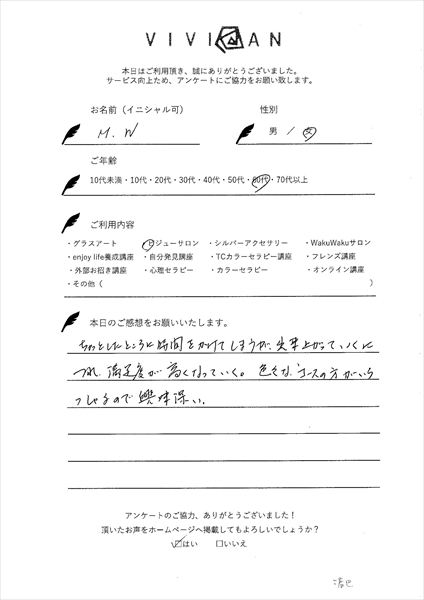 VIVIAN
本日はご利用頂き、誠にありがとうございました。
サービス向上ため、アンケートにご協力をお願い致します。
お名前（イニシャル可） 性別
M. W 男 / 女
ご年齢
10代未満・10代・20代・30代・40代・50代・60代・70代以上
ご利用内容
・グラスアート ・ビジューサロン ・シルバーアクセサリー ・WakuWakuサロン
・enjoy life養成講座 ・自分発見講座 ・TCカラーセラピー講座 ・フレンズ講座
・外部お招き講座 ・心理セラピー ・カラーセラピー ・オンライン講座
・その他（ ）
本日のご感想をお願いいたします。
ちょっとしたところに時間をかけてしまうが、出来上がっていくに
つれ、満足度が高くなっていく。色々なコースの方がいら
っしゃるので興味深い。
アンケートのご協力、ありがとうございました！
頂いたお声をホームページへ掲載してもよろしいでしょうか？
☑はい □いいえ